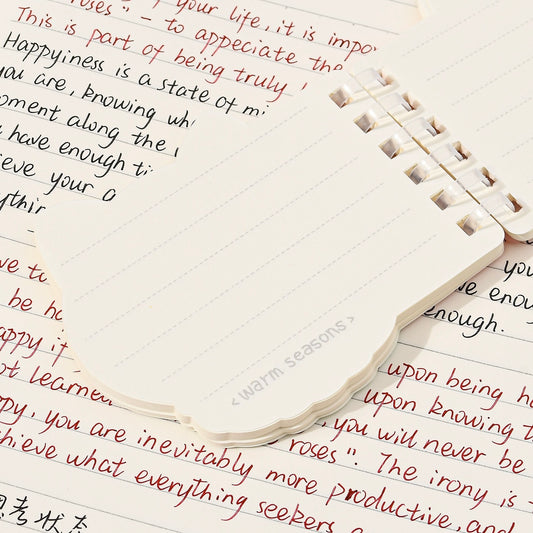 roses". – f your life, it is impo
This is part of – to appreciate the
Happyiness is a state of mi
of being truly
you are, knowing wh
oment along the
u have enough ti
ieve your
ythin
ve to
be ha
appy if
ot learned
ppy, you are inevitably more productive, and
chieve what everything seekers a
<warm seasons>
you
ve enou
enough.
upon being ha
upon knowing t
, you will never be
roses". The irony is –
思考状态